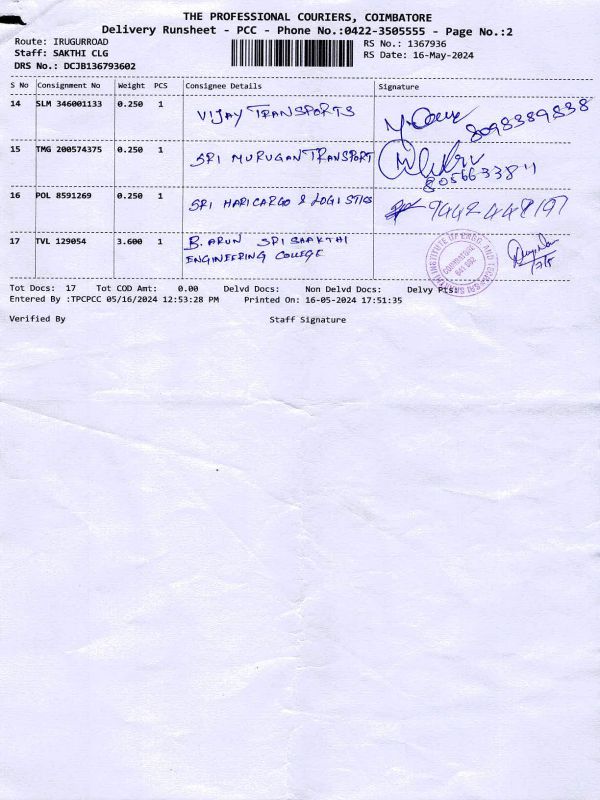 THE PROFESSIONAL COURIERS, COIMBATORE
Delivery Runsheet - PCC - Phone No.:0422-3505555 - Page No.:2
Route: IRUGURROAD
RS No.: 1367936
Staff: SAKTHI CLG
RS Date: 16-May-2024
DRS No.: DCJB136793602
S No Consignment No Weight PCS Consignee Details Signature
14 SLM 346001133 0.250 1 VIJAY TRANSPORTS 8098389838
15 TMG 200574375 0.250 1 SRI MURUGAN TRANSPORT 8056633811
16 POL 8591269 0.250 1 SRI HARICARGO & LOGISTICS 9442448197
17 TVL 129054 3.600 1 B. ARUN SRI SHAKTHI
ENGINEERING COLLEGE
Tot Docs: 17 Tot COD Amt: 0.00 Delvd Docs: Non Delvd Docs: Delvy Pts:
Entered By :TPCPCC 05/16/2024 12:53:28 PM Printed On: 16-05-2024 17:51:35
Verified By Staff Signature